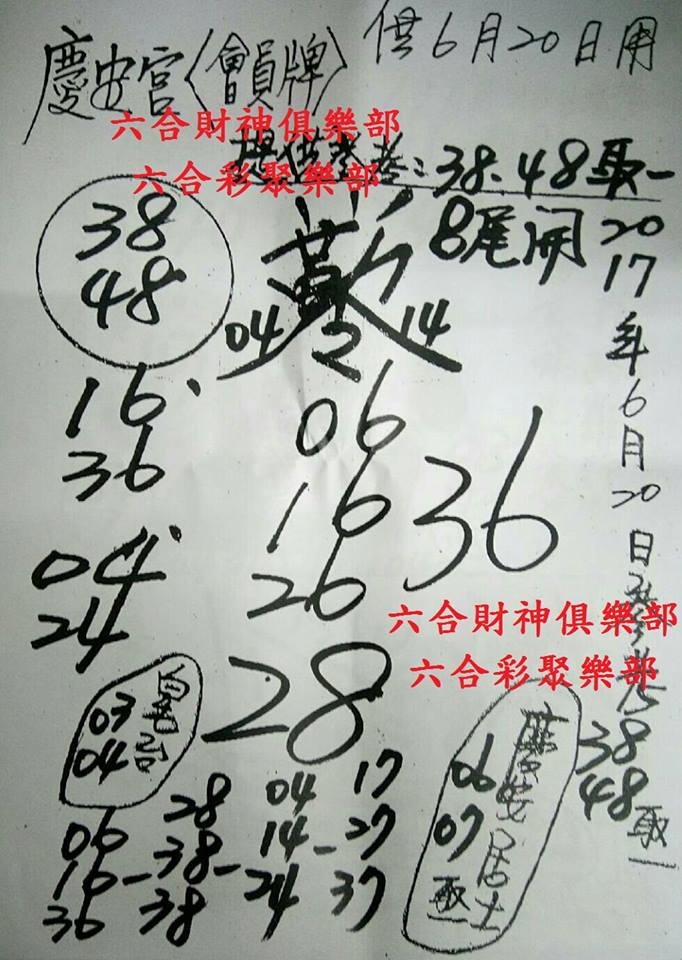 慶安宮〈會員牌〉供6月20日用
六合財神俱樂部
提供參考:38.48取一
六合彩聚樂部
38
48
8尾開
2017年6月20日
04 2 14
16.
36
06
16
26
36
04.
24
28
六合財神俱樂部
六合彩聚樂部
38
48取一
03
04
06
07
居士
取一
28 04 17
06
16-38-14-27
36 38 24 37